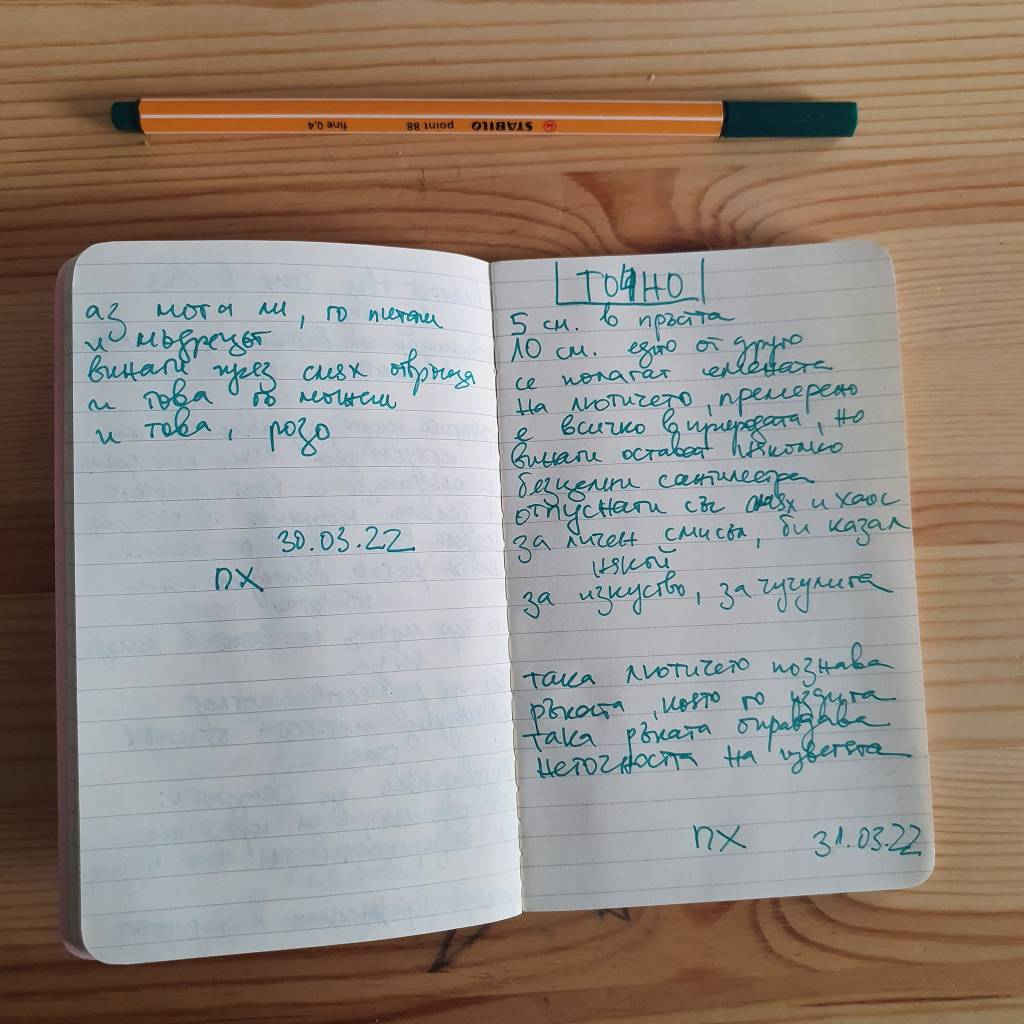 STABILO point 88 fine 0,4
аз мога ли, го питам
и мъдрецът
винаги чрез смях отвръща
и това го можеш
и това, розо
30.03.22
ПХ
ТОЧНО
5 см. в пръстта
10 см. едно от друго
се полагат семената
на лютичето, премерено
е всичко в природата, но
винаги остават няколко
безценни сантиметра
отпуснати със смях и хаос
за личен смисъл, би казал
някой
за изкуство, за чучулига
така лютичето познава
ръката, която го
така ръката оправдава
неточността на цветята
ПХ 31.03.22